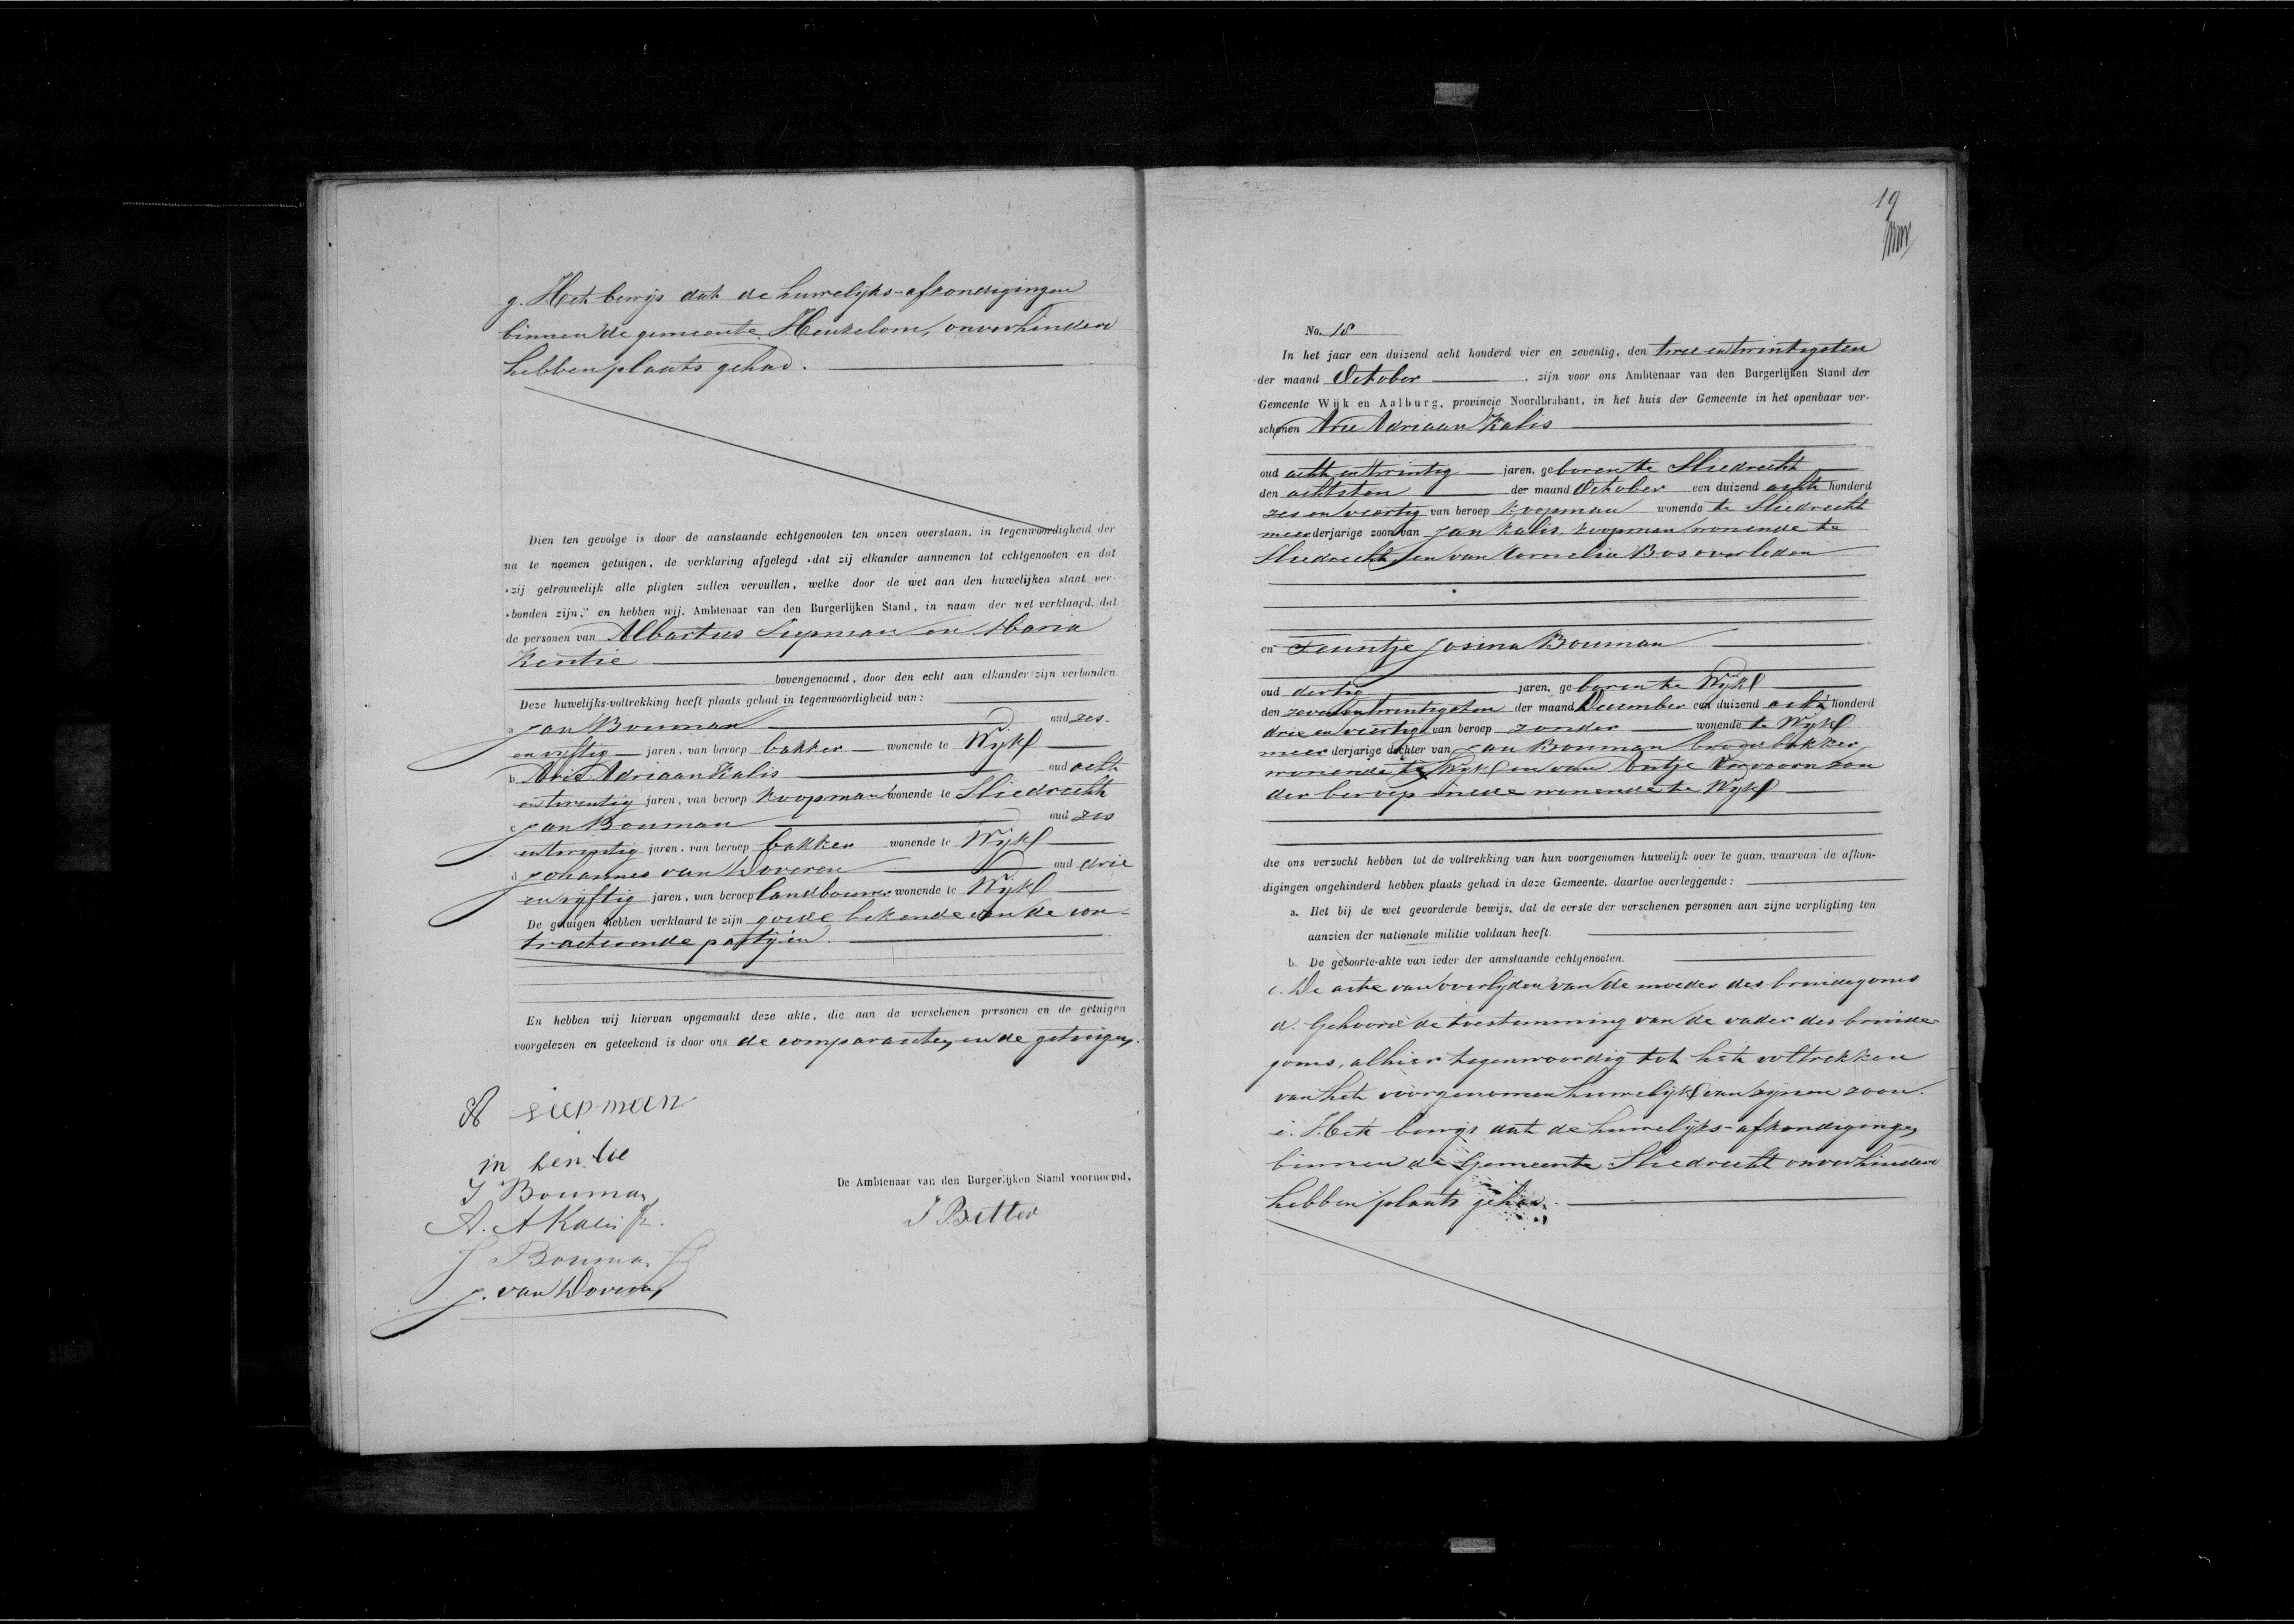 g. Het bewijs dat de huwelijks-afkondigingen
binnen de gemeente Heukelom, onverhinderd
hebben plaats gehad.
Dien ten gevolge is door de aanstaande echtgenooten ten onzen overstaan, in tegenwoordigheid der
na te noemen getuigen, de verklaring afgelegd »dat zij elkander aannemen tot echtgenooten en dat
»zij getrouwelijk alle pligten zullen vervullen, welke door de wet aan den huwelijken staat ver-
»bonden zijn," en hebben wij, Ambtenaar van den Burgerlijken Stand, in naam der wet verklaard, dat
de personen van Albartus Siepman en Maria
Kentie
bovengenoemd, door den echt aan elkander zijn verbonden.
Deze huwelijks-voltrekking heeft plaats gehad in tegenwoordigheid van:
a Jan Bouman oud zes-
en vijftig jaren, van beroep bakker wonende te Wijk
b Arie Adriaan Kalis oud acht
en twintig jaren, van beroep koopman wonende te Sliedrecht
c Jan Bouman oud zes
en twintig jaren, van beroep bakker wonende te Wijk
d Johannes van Doveren oud drie
en vijftig jaren, van beroep landbouwer wonende te Wijk
De getuigen hebben verklaard te zijn goede bekende van de con-
tracteerende partijen.
En hebben wij hiervan opgemaakt deze akte, die aan de verschenen personen en de getuigen
voorgelezen en geteekend is door ons de comparanten, en de getuigen.
A siepman
m kentie
J Bouman
A. A Kalis Jz.
De Ambtenaar van den Burgerlijken Stand voornoemd,
J Bouman
J. van Doveren
19
No. 18
In het jaar een duizend acht honderd vier en zeventig, den twee en twintigsten
der maand October, zijn voor ons Ambtenaar van den Burgerlijken Stand der
Gemeente Wijk en Aalburg, provincie Noordbrabant, in het huis der Gemeente in het openbaar ver-
schenen Arie Adriaan Kalis
oud acht en twintig jaren, geboren te Sliedrecht
den achtsten der maand October een duizend acht honderd
zes en veertig van beroep koopman wonende te Sliedrecht
meerderjarige zoon van Jan Kalis, koopman wonende te
Sliedrecht, en van Cornelia Bos overleden
en Teuntje Josina Bouman
oud dertig jaren, geboren te Wijk
den zeven en twintigsten der maand December een duizend acht honderd
drie en veertig van beroep zonder wonende te Wijk
meerderjarige dochter van Jan Bouman broodbakker
wonende te Wijk en van Antje Vervoorn zon
der beroep mede wonende te Wijk
die ons verzocht hebben tot de voltrekking van hun voorgenomen huwelijk over te gaan, waarvan de afkon-
digingen ongehinderd hebben plaats gehad in deze Gemeente, daartoe overleggende:
a. Het bij de wet gevorderde bewijs, dat de eerste der verschenen personen aan zijne verpligting ten
aanzien der nationale militie voldaan heeft.
b. De geboorte-akte van ieder der aanstaande echtgenooten.
c. De acte van overlijden van de moeder des bruidegoms
d. Gehoord de toestemming van de vader des bruide-
goms, alhier tegenwoordig tot het voltrekken
van het voorgenomen huwelijk van zijnen zoon.
e. Het bewijs dat de huwelijks-afkondigingen
binnen de Gemeente Sliedrecht onverhinderd
hebben plaats gehad.